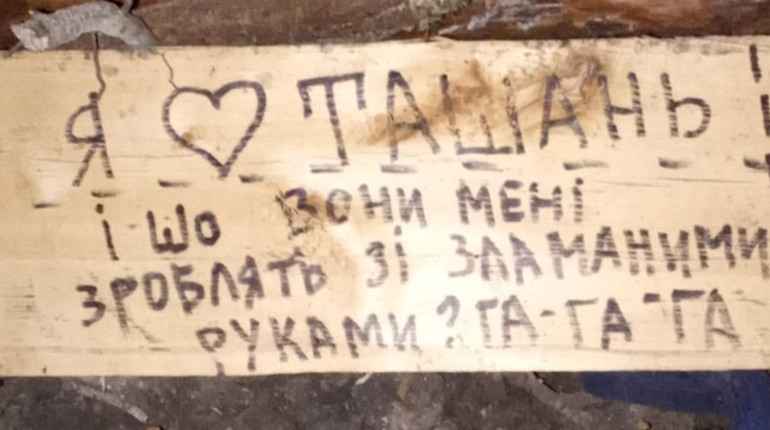 Я ♡ ТАШАНЬ !
і шо вони мені
зроблять зі зламаними
руками? ГА-ГА-ГА